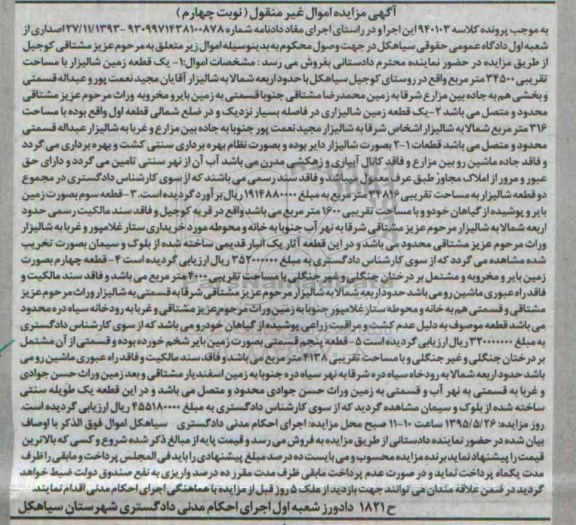 آگهی مزایده اموال غیر منقول (نوبت چهارم)
به موجب پرونده کلاسه 940103 این اجرا و در راستای اجرای مفاد دادنامه شماره 9309971438100878 - 27/11/1393 اصداری از
شعبه اول دادگاه عمومی حقوقی سیاهکل در جهت وصول محکوم به بدینوسیله اموال زیر متعلق به مرحوم عزیز مشتاقی کوجیل
از طریق مزایده در حضور نماینده محترم دادستانی بفروش می رسد: مشخصات اموال: 1- یک قطعه زمین شالیزار با مساحت
تقریبی 34500 متر مربع واقع در روستای کوجیل سیاهکل با حدود اربعه شمالا به شالیزار آقایان مجید نعمت پور و عبداله قسمتی
و بخشی هم به جاده بین مزارع شرقا به زمین محمدرضا مشتاقی جنوبا قسمتی به زمین بایر و مخروبه وراث مرحوم عزیز مشتاقی
محدود و متصل می باشد 2- یک قطعه زمین شالیزاری در فاصله بسیار نزدیک و در ضلع شمالی قطعه اول واقع بوده با مساحت
316 متر مربع شمالا به شالیزار اشخاص شرقا به شالیزار مجید نعمت پور جنوبا به جاده بین مزارع و غربا به شالیزار عبداله قسمتی
محدود و متصل می باشد قطعات 1-2 بصورت شالیزار دایر بوده و بصورت نظام بهره برداری سنتی کشت و بهره برداری می گردد
و فاقد جاده ماشین رو بین مزارع و فاقد کانال آبیاری و زهکشی مدرن می باشد آب آن از نهر سنتی تامین می گردد و دارای حق
عبور و مرور از املاک مجاور طبق عرف معمول میباشد و فاقد سند رسمی می باشند که از سوی کارشناس دادگستری در مجموع
دو قطعه شالیزار به مساحت تقریبی 34816 متر مربع به مبلغ 1914880000 ریال برآورد گردیده است. 3- قطعه سوم بصورت زمین
بایر و پوشیده از گیاهان خودرو با مساحت تقریبی 1600 متر مربع می باشد واقع در قریه کوجیل و فاقد سند مالکیت رسمی حدود
اربعه شمالا به شالیزار مرحوم عزیز مشتاقی شرقا به نهر آب جنوبا به خانه و محوطه مورد خریداری ستار غلامپور و غربا به شالیزار
وراث مرحوم عزیز مشتاقی محدود می باشد و در این قطعه آثار یک انبار قدیمی ساخته شده از بلوک و سیمان بصورت تخریب
شده مشاهده می گردد که از سوی کارشناس دادگستری به مبلغ 352000000 ریال ارزیابی گردیده است 4- قطعه چهارم بصورت
زمین بایر و مخروبه و مشتمل بر درختان جنگلی و غیر جنگلی با مساحت تقریبی 4000 متر مربع می باشد و فاقد سند مالکیت و
فاقد راه عبوری ماشین رو می باشد حدود اربعه شمالا به شالیزار مرحوم عزیز مشتاقی شرقا به قسمتی به شالیزار وراث مرحوم عزیز
مشتاقی و قسمتی هم به خانه و محوطه ستار غلامپور جنوبا به زمین وراث مرحوم عزیز مشتاقی و غربا به رودخانه سیاه دره محدود
می باشد قطعه موصوف به دلیل عدم کشت و مراقبت زراعی پوشیده از گیاهان خودرو می باشد که از سوی کارشناس دادگستری
به مبلغ 320000000 ریال ارزیابی گردیده است 5- قطعه پنجم قسمتی بصورت زمین بایر شخم خورده بوده و قسمتی از آن مشتمل
بر درختان جنگلی و غیر جنگلی و با مساحت تقریبی 4138 متر مربع می باشد و فاقد سند مالکیت و فاقد راه عبوری ماشین رو می
باشد حدود اربعه شمالا به رودخانه سیاه دره شرقا به نهر سیاه دره جنوبا به زمین اسفندیار مشتاقی و بعد زمین وراث حسن جوادی
و غربا به قسمتی به نهر آب و قسمتی به زمین وراث حسن جوادی محدود و متصل می باشد و در این قطعه یک طویله سنتی
ساخته شده از بلوک و سیمان مشاهده گردید که از سوی کارشناس دادگستری به مبلغ 455180000 ریال ارزیابی گردیده است.
روز مزایده: 1395/5/26 ساعت 10-11 صبح محل مزایده: اجرای احکام مدنی دادگستری سیاهکل اموال فوق الذکر با اوصاف
بیان شده در حضور نماینده دادستانی از طریق مزایده به فروش می رسد و قیمت پایه از مبالغ ذکر شده شروع و کسی که بالاترین
قیمت را پیشنهاد نماید برنده مزایده محسوب و می بایست ده درصد مبلغ پیشنهادی را باید فی المجلس پرداخت و مابقی را ظرف
مدت یکماه پرداخت نماید و در صورت عدم پرداخت مابقی ظرف مدت مقرر ده درصد واریزی به نفع صندوق دولت ضبط خواهد
گردید در ضمن علاقه مندان می توانند جهت بازدید از ملک 5 روز قبل از مزایده با هماهنگی اجرای احکام مدنی اقدام نمایند.
ح 1821 دادورز شعبه اول اجرای احکام مدنی دادگستری شهرستان سیاهکل